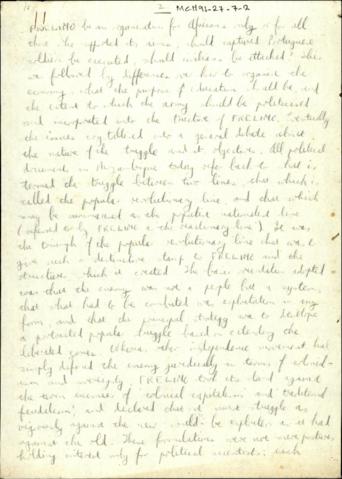 2 MCH91-27-7-2
FRELIMO be an organisation for Africans only or for all
those who supported its aims, should captured Portuguese
soldiers be executed, should civilians be attacked? These
were followed by differences over how to organise the
economy, what the purpose of education should be, and
the extent to which the army should be politicised
and incorporated into the structure of FRELIMO. Eventually
the issues crystallised into a general debate about
the nature of the struggle and its objectives. All political
documents in Mozambique today refer back to what is
termed the struggle between two lines, that which is
called the popular revolutionary line, and that which
may be summarised as the populist nationalist line
(referred to by FRELIMO as the reactionary line). It was
the triumph of the popular revolutionary line that was to
give such a distinctive stamp to FRELIMO and the
structures which it created. The basic resolution adopted
was that the enemy was not a people but a system,
that what had to be combated was exploitation in any
form, and that the principal strategy was to develop
a protracted popular struggle based on extending the
liberated zones. Whereas other independence movements had
simply defined the enemy juridically in terms of colonial-
ism and sovereignty, FRELIMO took its stand against
the twin enemies of colonial capitalism and traditional
feudalism, and declared that it must struggle as
vigorously against the new would-be exploiters as it had
against the old. These formulations were not mere postures,
holding interest only for political scientists; each